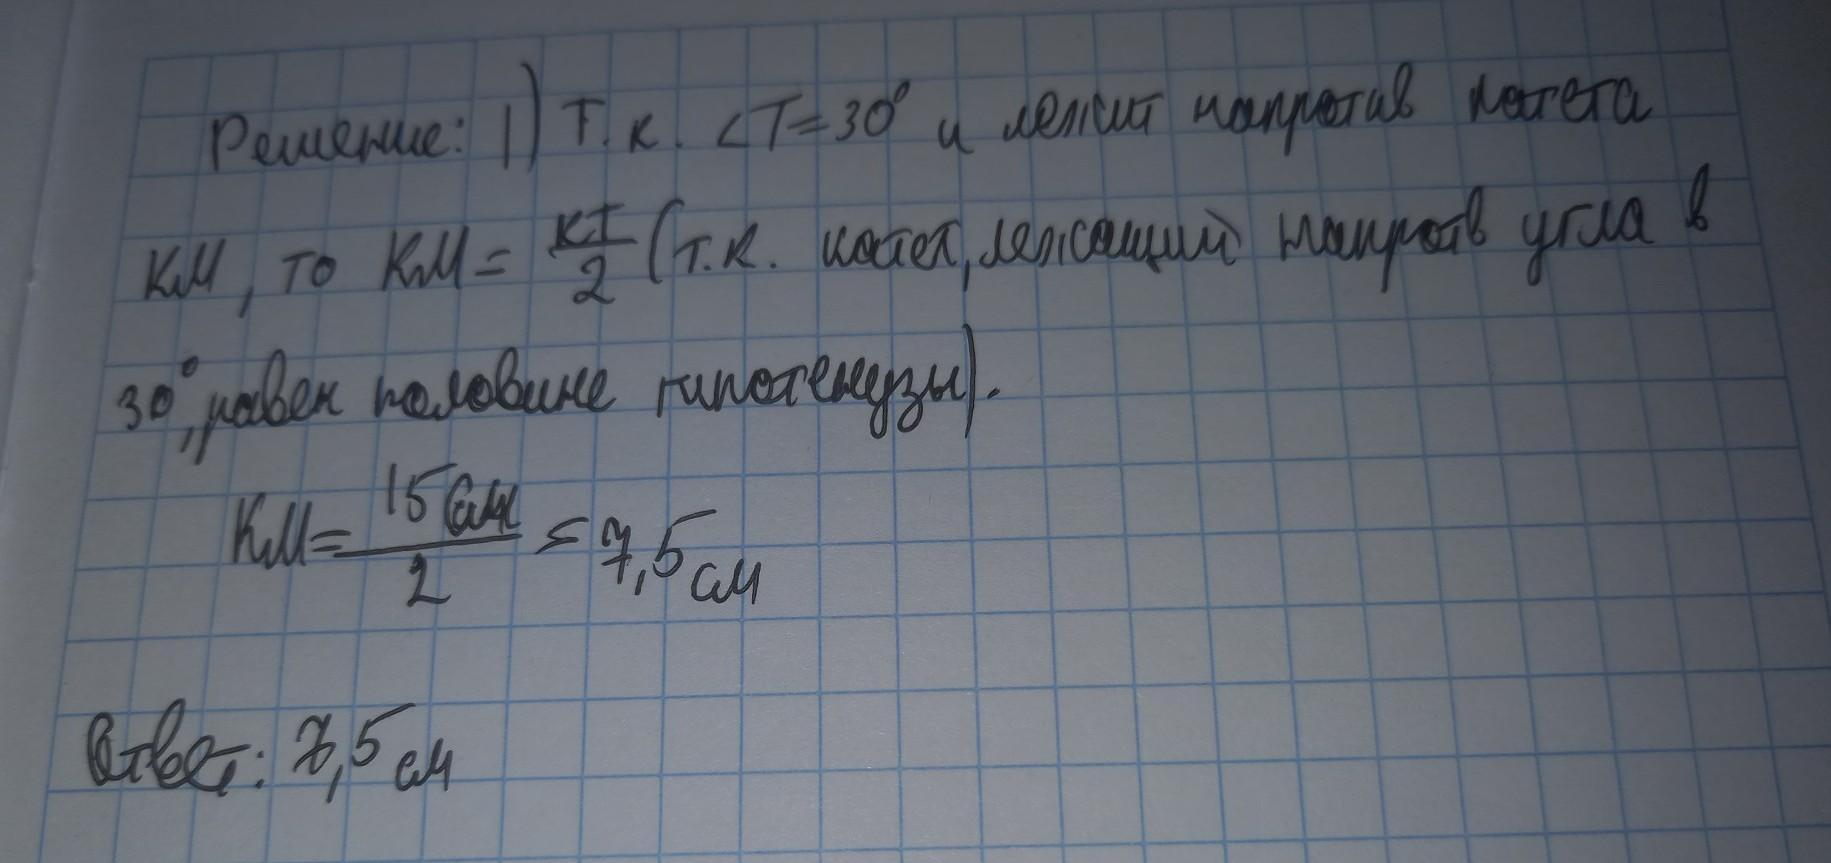 Решение: 1) Т.к. ∠T=30° и лежит напротив катета
КМ, то КМ = КТ/2 (т.к. катет, лежащий напротив угла в
30°, равен половине гипотенузы).
КМ= 15 см/2 = 7,5 см
Ответ: 7,5 см